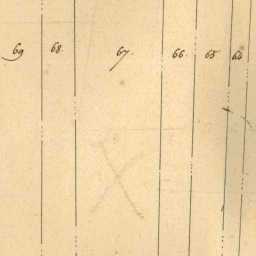 69 68. 67. 66. 65 64